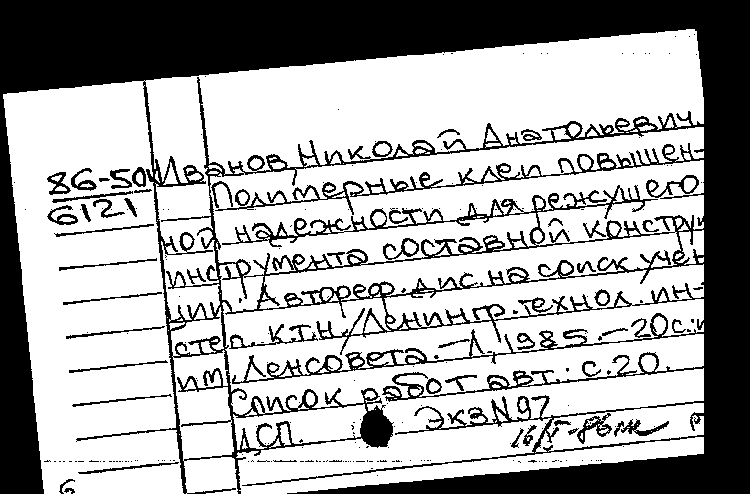 86-50 Иванов, Николай Анатольевич.
6121 Полимерные клеи повышен-
ной надежности для режущего
инструмента составной конструк
ции. Автореф. дис. на соиск. учен
степ. к.т.н. /Ленингр. технол. ин-
им. Ленсовета. - Л., 1985. - 20с.
Список работ авт.: с. 20.
ДСП. Экз N97
-86
6